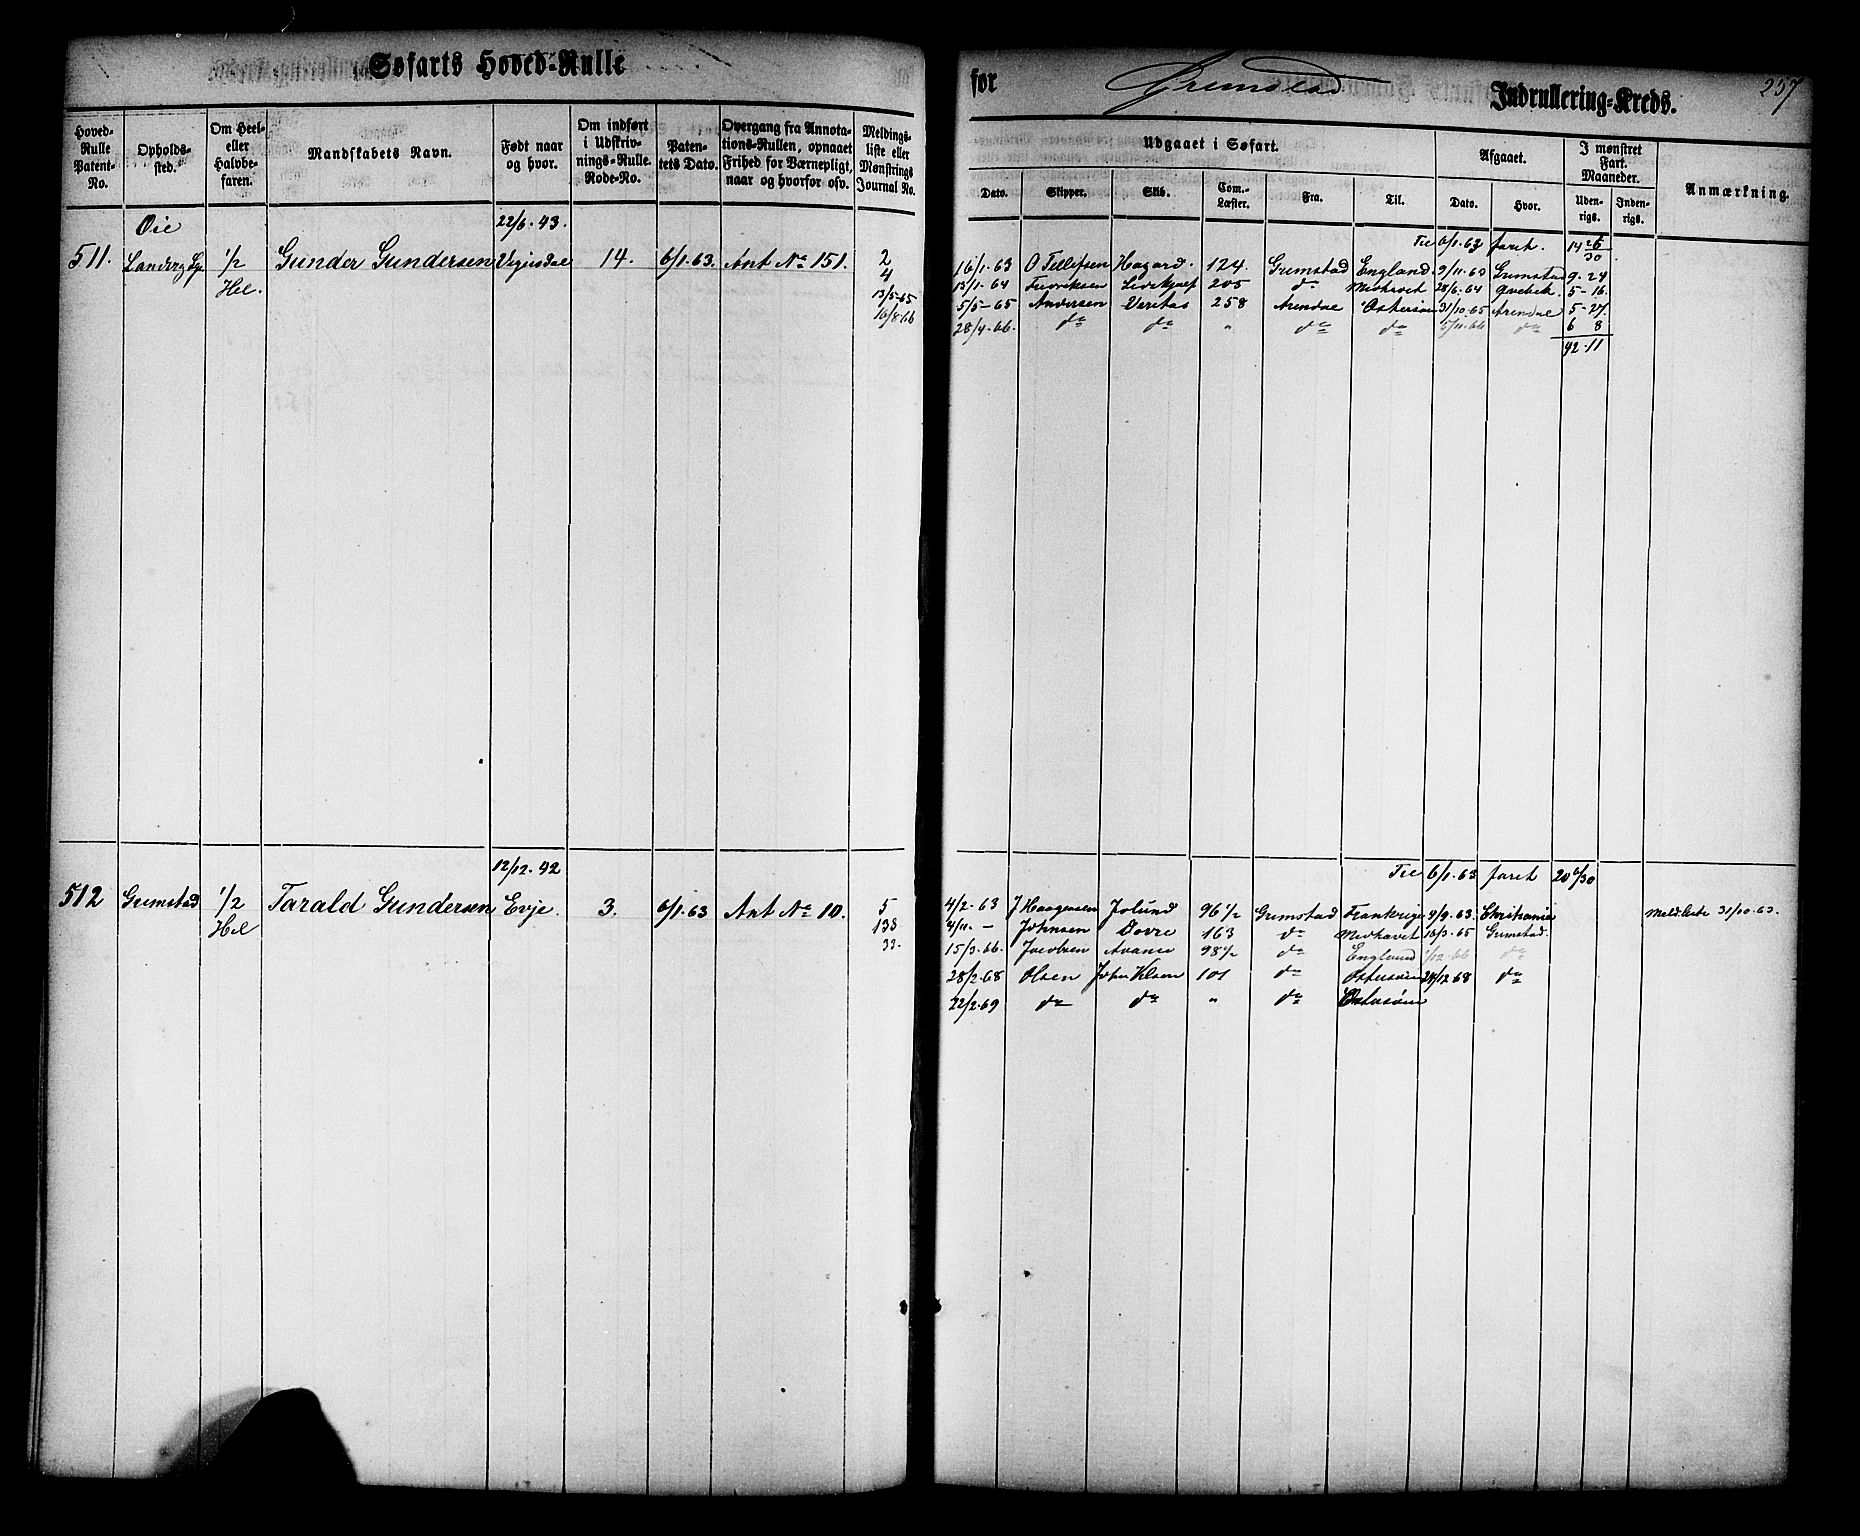 Søfarts Hoved-Rulle
for Grimstad Indrullering-Kreds.
257
Hoved-Rulle Patent-No.
Opholds-sted.
Om Heel- eller Halvbe-faren.
Mandskabets Navn.
Født naar og hvor.
Om indført i Udskriv-nings-Rulle. Rode-No.
Paten-tets Dato.
Overgang fra Annota-tions-Rullen, opnaaet Frihed for Værnepligt, naar og hvorfor osv.
Meldings-liste eller Mønstrings Journal No.
Udgaaet i Søfart.
Dato. Skipper. Skib. Com.-Læster. Fra. Til.
Afgaaet.
Dato. Hvor.
I mønstret Fart. Maaneder.
Uden-rigs. Inden-rigs.
Anmærkning.
Øie 22/6. 43.
511. 1/2 Gunder Gundersen Vegusdal 14. 6/1. 63. Ant No 151. 2
Hel. 4
13/5-65
16/8 66
Til 6/1. 63 faret. 14 26/30
16/1. 63 O Tellefsen Hagard. 124. Grimstad England 9/11. 63 Grimstad 9-24
13/1. 64 Fredriksen 205 do 28/6. 64 Qvebek. 5-16
5/5-65 Andersen Veritas 258 Arendal Østersøen 31/10. 65 Arendal 5-27
28/4. 66. do do " do do 5/11. 66 do 6 8
42. 11
12/12. 42
512 Grimstad 1/2 Tarald Gundersen Evje. 3. 6/1. 63 Ant No 10. 5
Hel 138
33.
Til 6/1. 63 faret 20 6/30
4/2. 63 J Haagensen Jølund 96 1/2 Grimstad Frankrige 9/9. 63. Christiania Meldliste 31/10. 63.
4/11. - Johnsen Dovre 163 do Middhavet 16/3. 65 Grimstad.
15/3. 66. Jacobsen Avance 98 1/2 do England 1/12. 66 do
28/2. 68 Olsen John Nilsen 101 do Østersøen 24/12. 68 do
22/2. 69 do do " do Østersøen